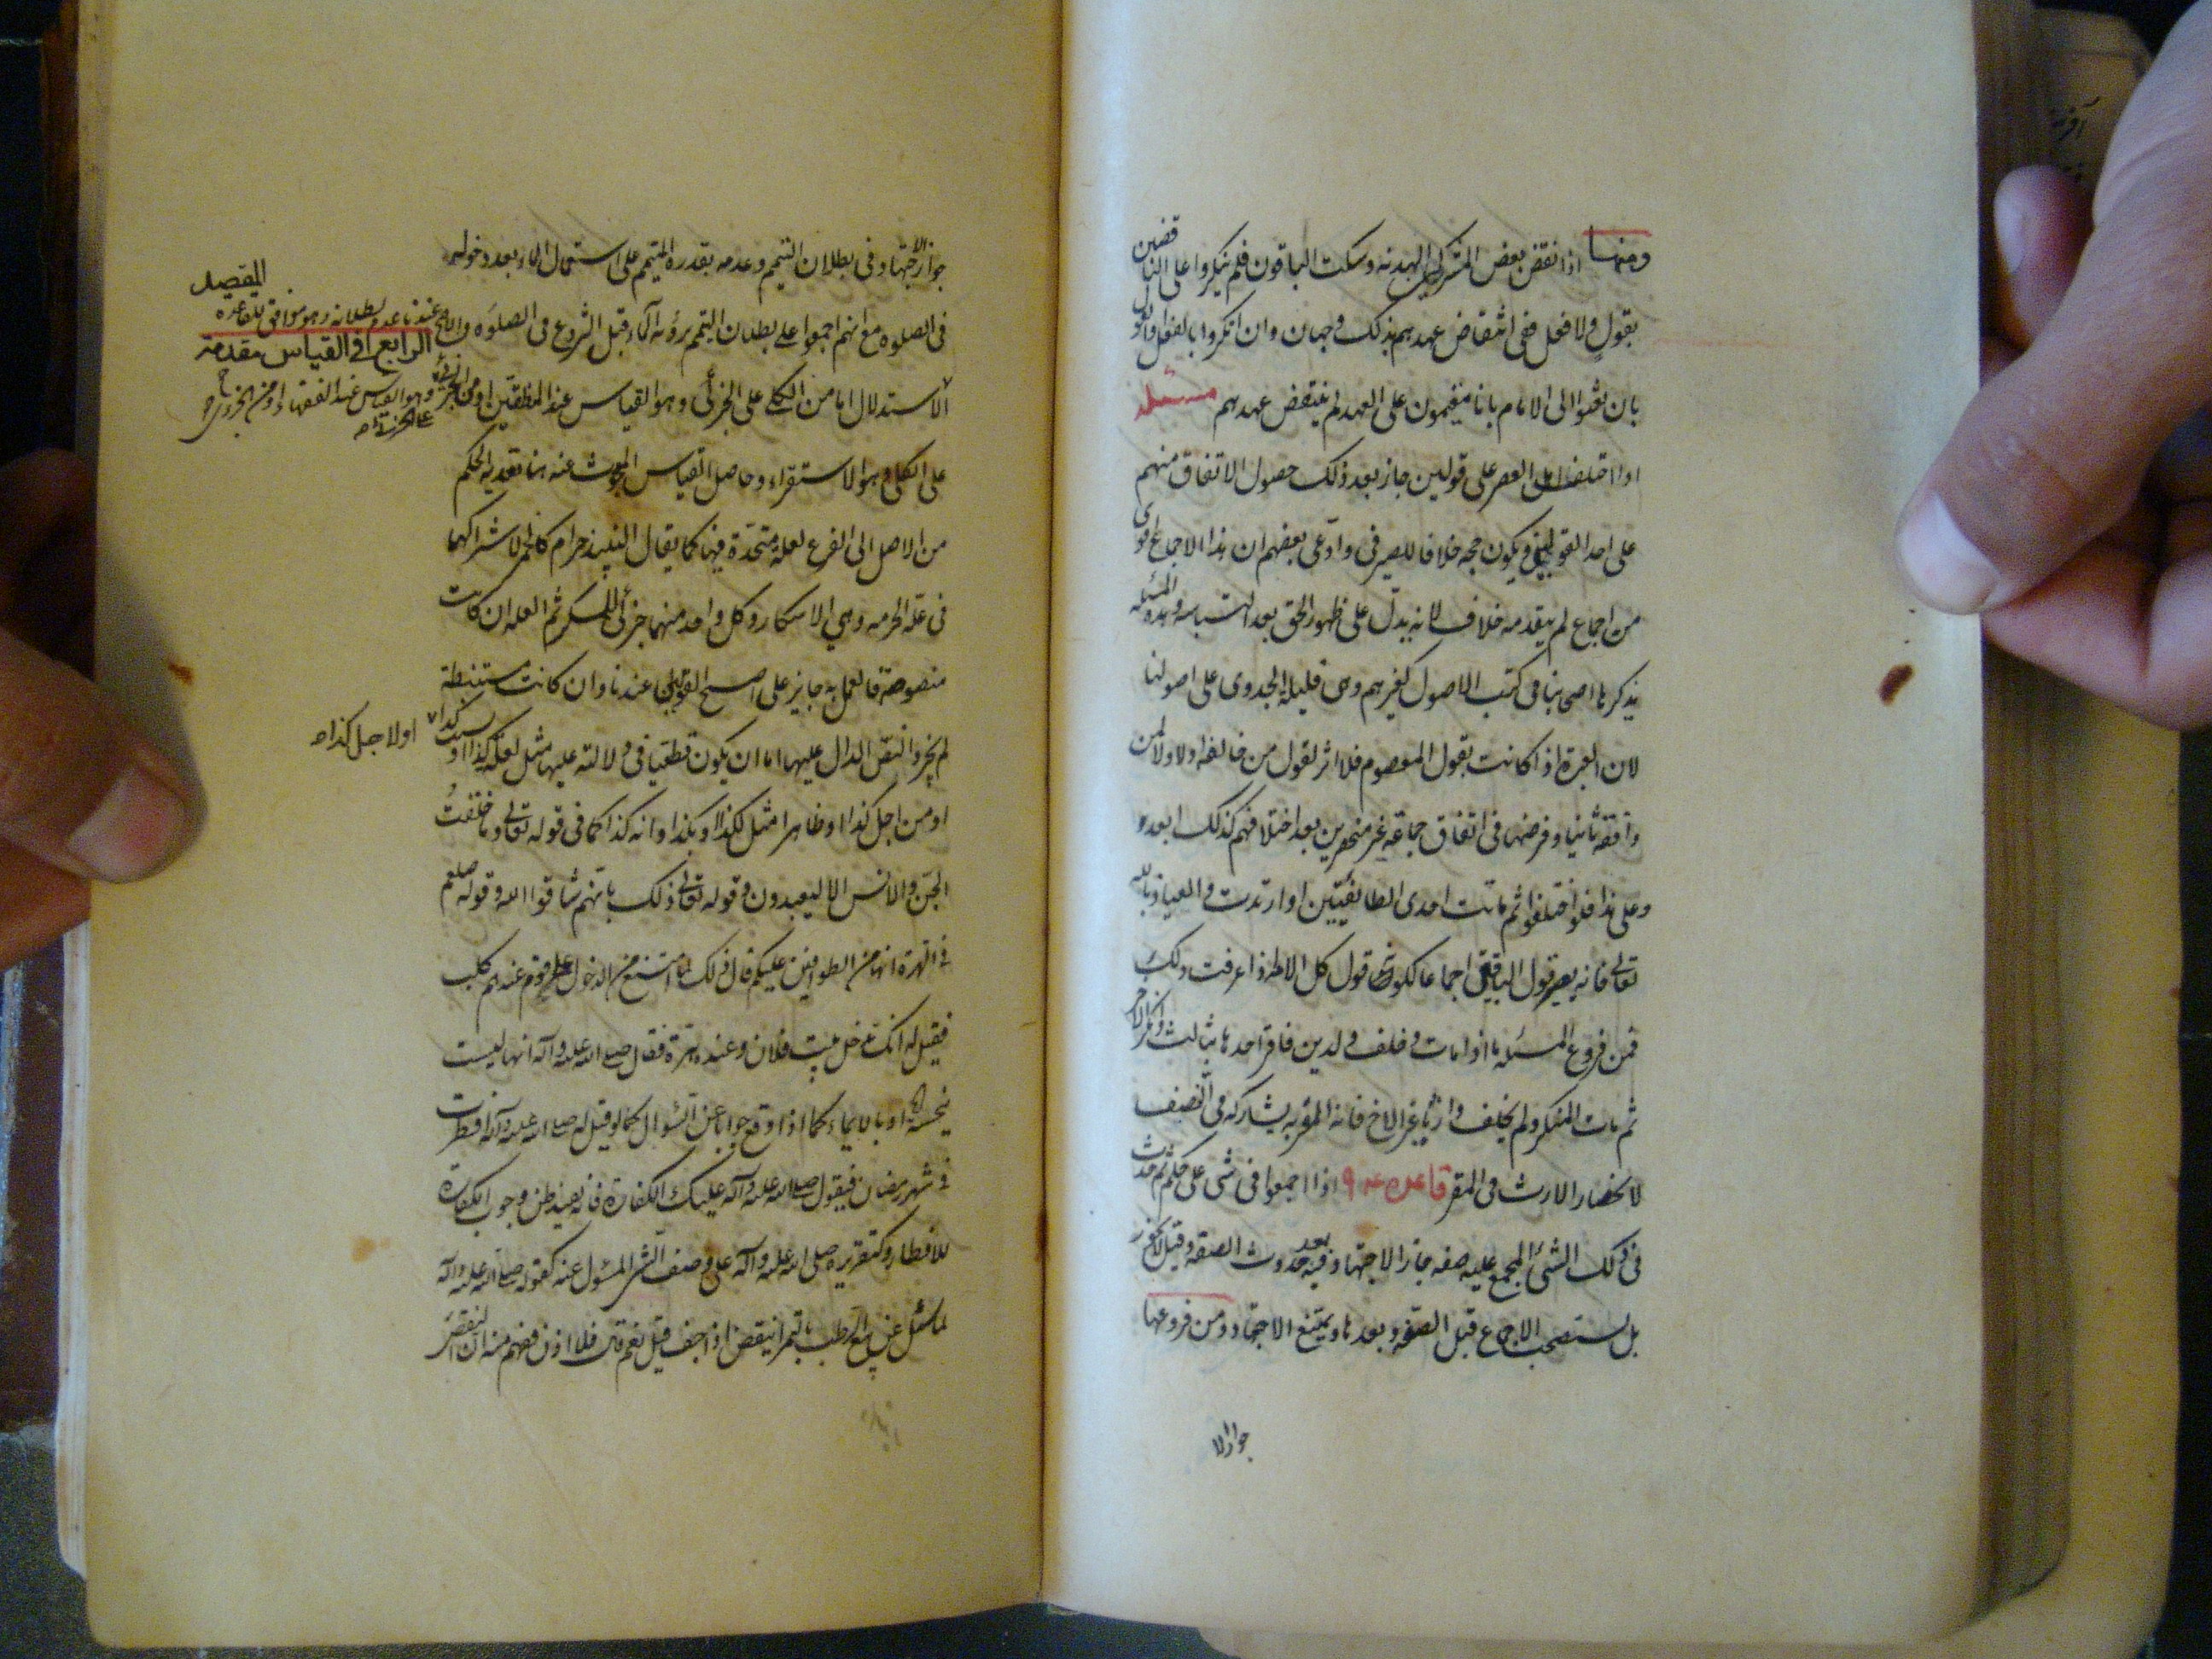 ومنها اذا نقض بعض المشركين الهدنة وسكت الباقون فلم ينكروا على الناقضين
بقول ولا فعل ففي انتقاض عهدهم بذلك وجهان وان انكروا بالفعل والقول
بان بعثوا الى الامام بانا مقيمون على العهد لم ينتقض عهدهم مسئله
اذا اختلف اهل العصر على قولين جاز بعد ذلك حصول الاتفاق منهم
على احد القولين ويكون حجه خلافا للصيرفي وادعى بعضهم ان هذا الاجماع اقوى
من اجماع لم يتقدمه خلاف لانه يدل على ظهور الحق بعد التباسه وهذه المسئله
يذكرها اصحابنا في كتب الاصول كغيرهم وهي قليلة الجدوى على اصولنا
لان العبرة اذا كانت بقول المعصوم فلا اثر لقول من خالفه اولا ولا لمن
وافقه ثانيا وفرضها في اتفاق جماعة غير منحصرين بعد اختلافهم كذلك ابعد
وعلى هذا فلو اختلفوا ثم ماتت احدى الطائفتين او ارتدت والعياذ بالله
تعالى فانه يصير قول الباقين اجماعا لكونه قول كل الامة اذا عرفت ذلك
فمن فروع المسئله ما اذا مات وخلف ولدين فاقر احدهما بثالث وانكر الاخر
ثم مات المنكر ولم يخلف وارثا غير الاخ فانه المقر به يشاركه في النصف
لانحصار الارث في المقر قاعده عه ٩ اذا اجمعوا في شئ على حكم ثم حدث
في ذلك الشئ المجمع عليه صفه جاز الاجتهاد فيه بعد حدوث الصفه وقيل لا يجوز
بل يستصحب الاجماع قبل الصفه وبعدها ويمتنع الاجتهاد ومن فروعها
جواز الا
جواز الاجتهاد في بطلان التيمم وعدمه بقدرة المتيمم على استعمال الماء بعد دخوله
في الصلوه مع انهم اجمعوا على بطلان التيمم برؤية الماء قبل الشروع في الصلوة والاصح
عندنا عدم بطلانه وهو موافق للقاعده
المقصد
الرابع في القياس مقدمة
الاستدلال اما من الكلي على الجزئي وهو القياس عند المنطقيين او من الجزئي
على الجزئي وهو القياس عند الفقهاء او من الجزئي
على الكلي وهو الاستقراء وحاصل القياس المبحوث عنه هنا تعدية الحكم
من الاصل الى الفرع لعلة متحدة فيهما كما يقال النبيذ حرام كالخمر لاشتراكهما
في علة الحرمه وهي الاسكار وكل واحد منهما جزئي للمسكر ثم العله ان كانت
منصوصة فالعمل به جايز على اصح القولين عندنا وان كانت مستنبطة
لم يجز والنقل الدال عليها اما ان يكون قطعيا في دلالته عليها مثل لعلة كذا او بسبب كذا
او لاجل كذا
او من اجل كذا او ظاهرا مثل لكذا او بكذا وانه كذا كما في قوله تعالى وما خلقت
الجن والانس الا ليعبدون وقوله تعالى ذلك بانهم شاقوا الله وقوله صلعم
في الهرة انها من الطوافين عليكم قال ذلك لما امتنع من الدخول على قوم عندهم كلب
فقيل له انك تدخل بيت فلان وعنده هرة فقال صلى الله عليه وآله انها ليست
بنجسة او بالايماء كما اذا وقع جوابا عن السؤال كما لو قيل له صلى الله عليه وآله افطرت
في شهر رمضان فيقول صلى الله عليه وآله عليك الكفارة فانه يفيد ظن وجوب الكفارة
للافطار وكتقريره صلى الله عليه وآله على وصف الشئ المسئول عنه كقوله صلى الله عليه وآله
لما سئل عن بيع الرطب بالتمر اينقص اذا جف قيل نعم قال فلا اذن ففهم منه ان النقص